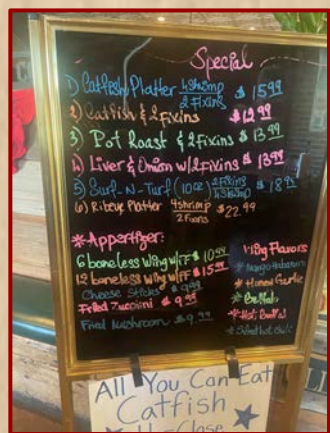 Special
1) Catfish Platter 4 Shrimp 2 Fixins $15.99
2) Catfish & 2 Fixins $12.99
3) Pot Roast & 2 Fixins $13.99
4) Liver & Onion w/2 Fixins $13.99
5) Surf-N-Turf (10oz) 2 Fixins 4 Shrimp $18.95
6) Ribeye Platter 4 Shrimp 2 Fixins $22.99
*Appertizer:
6 boneless wing w/FF $10.99
12 boneless wing w/FF $15.99
Cheese Sticks $9.99
Fried Zuccini $9.99
Fried Mushroom $9.99
Wing Flavors
*Mango Habanero
*Honey Garlic
*Buffalo
*Hot Buffalo
All You Can Eat
Catfish